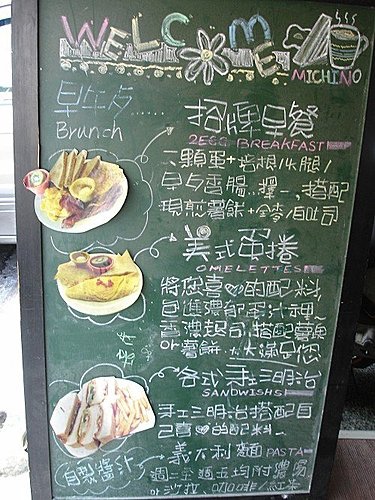 WELCOME
MICHINO
早午店......
Brunch
招牌早餐
2EGG BREAKFAST
二顆蛋+培根/火腿/
早午香腸..擇一,搭配
現煎薯餅+全麥/白吐司
美式蛋捲
OMELETTES
將您喜♡的配料
包進濃郁蛋汁裡..
香濃起司,搭配薯角
薯餅..大大滿足您
各式手工三明治
SANDWISHS
手工三明治搭配自
己喜♡的配料..
自製醬汁
義大利麵 PASTA
週三至週五均附濃湯
沙拉 咖啡/紅茶